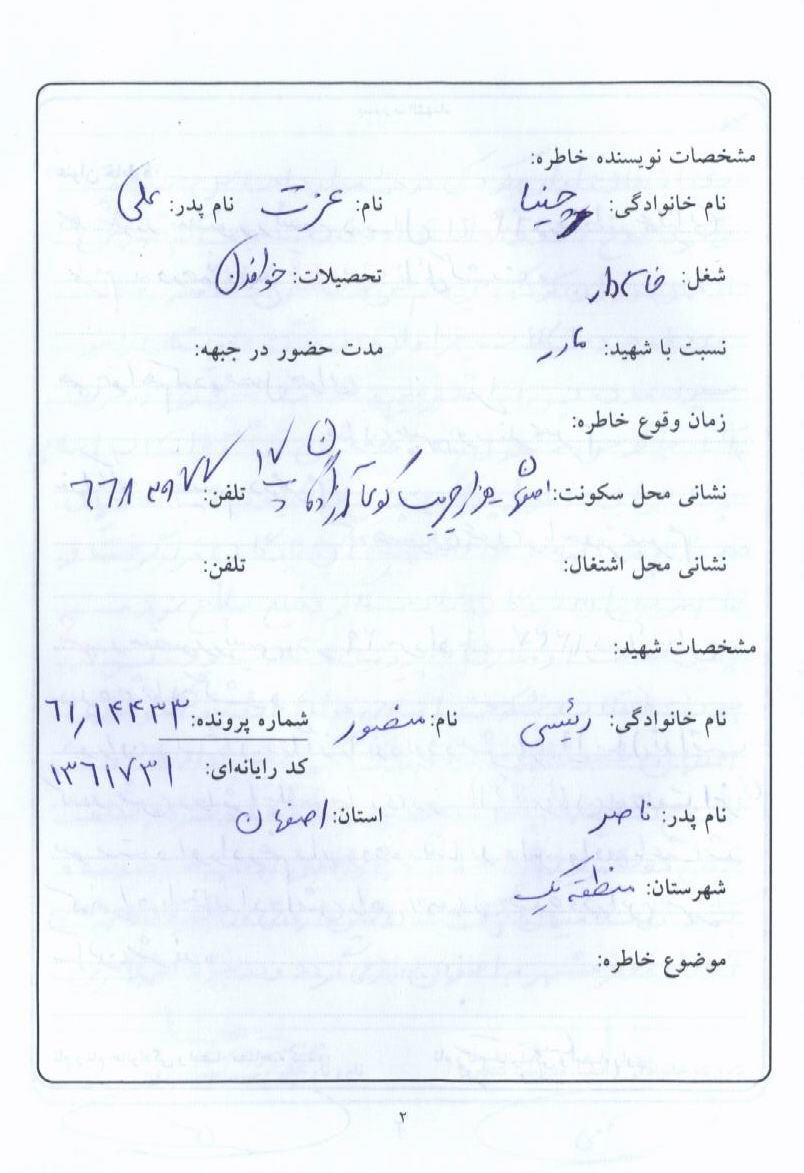 مشخصات نویسنده خاطره:
نام خانوادگی: چنیا نام: عزت نام پدر: علی
شغل: خانه‌دار تحصیلات: خواندن
نسبت با شهید: مادر مدت حضور در جبهه:
زمان وقوع خاطره:
نشانی محل سکونت: اصفهان هزار جریب کوی آزادگان ۱۷ تلفن: ۶۶۸۳۹۷۷
نشانی محل اشتغال: تلفن:
مشخصات شهید:
نام خانوادگی: رئیسی نام: منصور شماره پرونده: ۶۱/۱۴۴۳۳
کد رایانه‌ای: ۱۳۶۱۷۳۱
نام پدر: ناصر استان: اصفهان
شهرستان: منطقه یک
موضوع خاطره:
۲